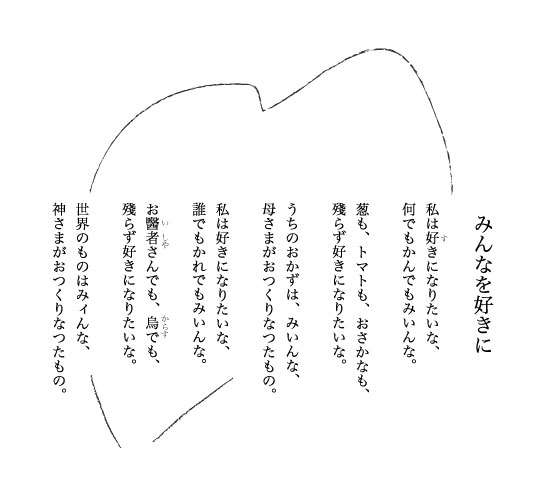 みんなを好きに
私は好きになりたいな、
何でもかんでもみいんな。
葱も、トマトも、おさかなも、
殘らず好きになりたいな。
うちのおかずは、みいんな、
母さまがおつくりなつたもの。
私は好きになりたいな、
誰でもかれでもみいんな。
お醫者さんでも、烏でも、
殘らず好きになりたいな。
世界のものはみィんな、
神さまがおつくりなつたもの。